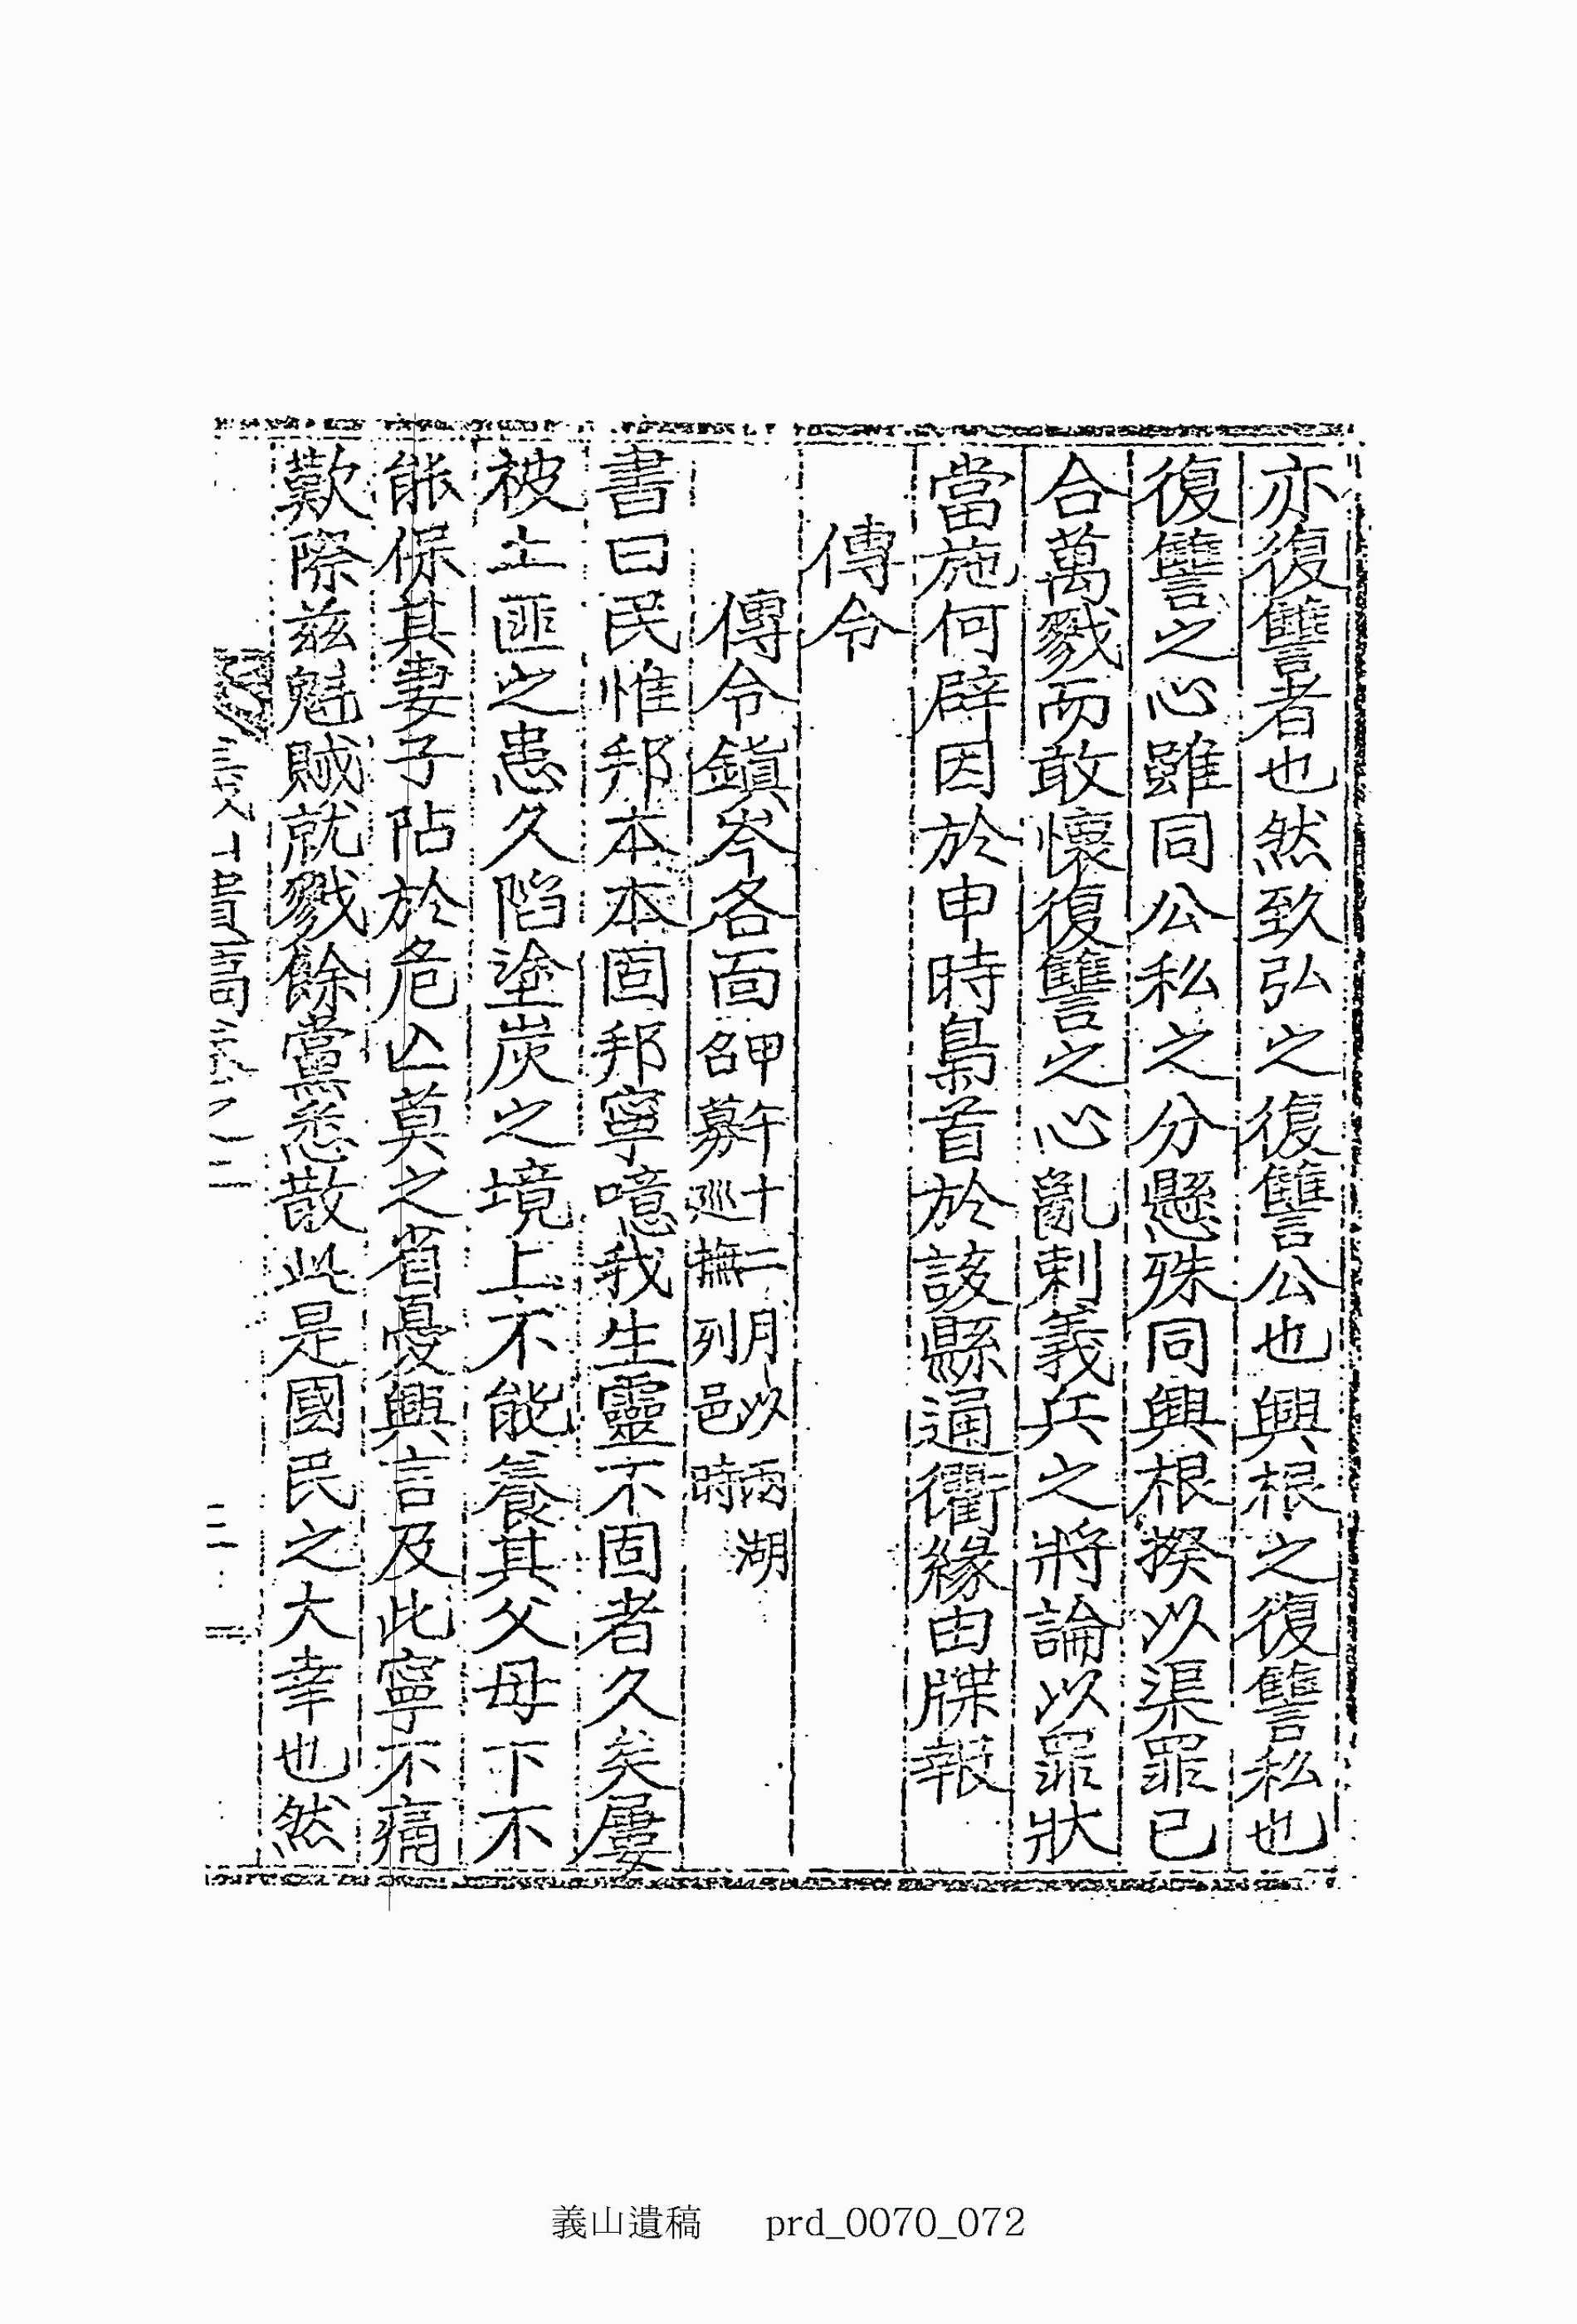 亦復讐者也然致弘之復讐公也興根之復讐私也
復讐之心雖同公私之分懸殊同興根揆以渠罪已
合萬戮而敢懷復讐之心亂刺義兵之將論以罪狀
當施何辟因於申時梟首於該縣通衢緣由牒報
傳令
傳令鎭岑各面甲午十二月以兩湖
召募巡撫列邑時
書曰民惟邦本本固邦寧噫我生靈不固者久矣屢
被土匪之患久陷塗炭之境上不能養其父母下不
能保其妻子阽於危亡莫之省憂興言及此寧不痛
歎際玆魁賊就戮餘黨悉散此是國民之大幸也然
義山遺稿 卷之二
義山遺稿 prd_0070_072